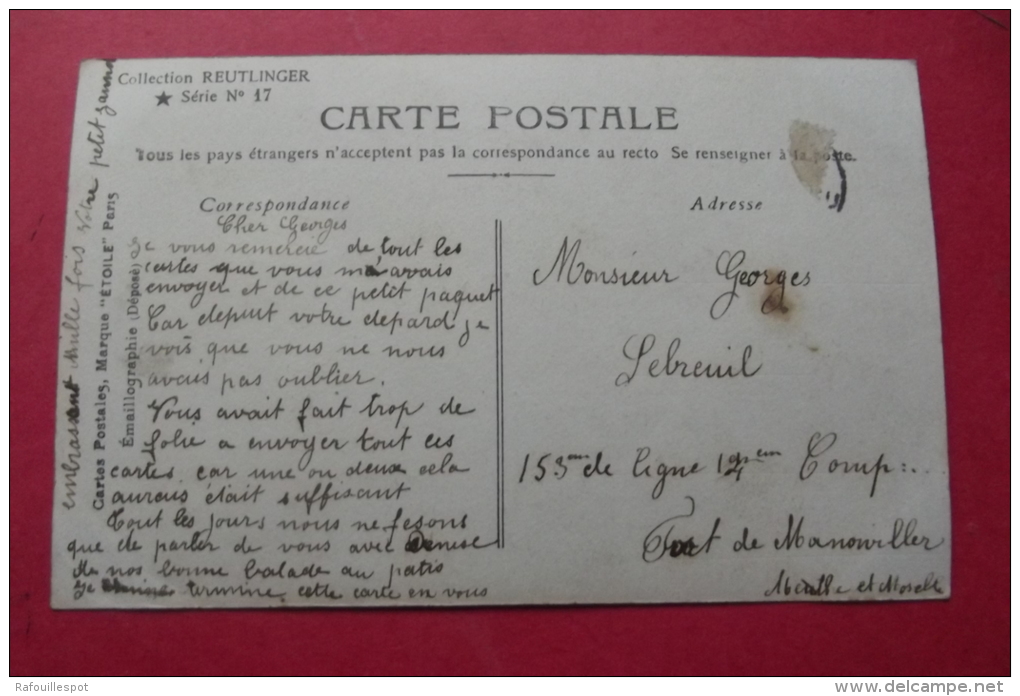 Collection REUTLINGER
★ Série Nº 17
CARTE POSTALE
Tous les pays étrangers n'acceptent pas la correspondance au recto Se renseigner à la poste.
Correspondance
Cher Georges
Je vous remercie de tout les
cartes que vous m'avais
envoyer et de ce petit paquet
Car depuit votre depard je
vois que vous ne nous
avais pas oublier.
Vous avait fait trop de
folie a envoyer tout ces
cartes car une ou deux cela
aurais était suffisant
Tout les jours nous ne fesons
que de parler de vous avec Denise
de nos bonne balade au patis
Je termine cette carte en vous
embrassant Mille fois Votre petit
Cartes Postales, Marque "ÉTOILE" Paris
Émaillographie (Déposé)
Adresse
Monsieur Georges
Lebreuil
153me de ligne 14em Comp:..
Fort de Manonviller
Meurthe et Moselle
Rafouillespot
www.delcampe.net